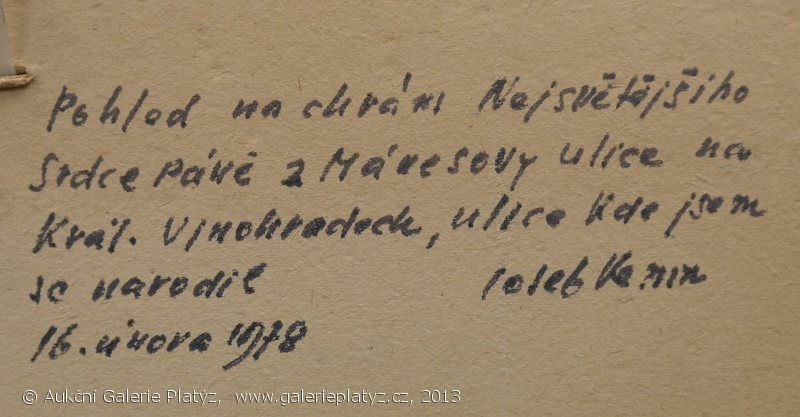 Pohled na chrám Nejsvětějšího
Srdce Páně z Mánesovy ulice na
Král. Vinohradech, ulice kde jsem
se narodil
16. února 1978
© Aukční Galerie Platýz, www.galerieplatyz.cz, 2013